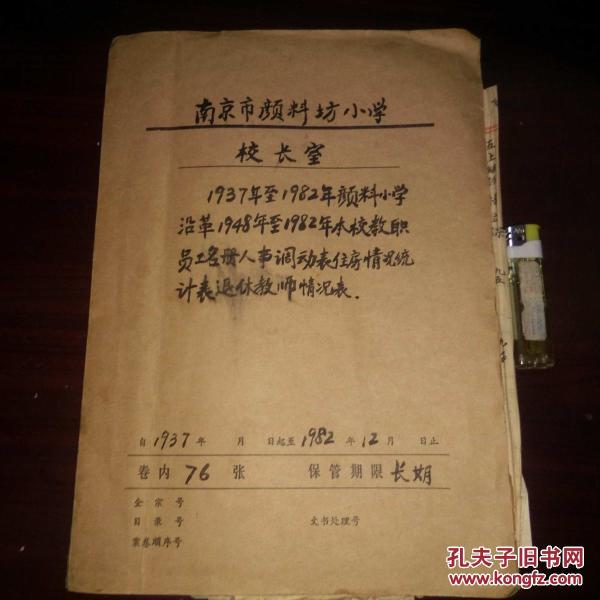 南京市颜料坊小学
校长室
1937年至1982年颜料小学
沿革1948年至1982年本校教职
员工名册人事调动表住房情况统
计表退休教师情况表.
自1937年 月 日起至1982年12月 日止
卷内76张 保管期限长期
全宗号
目录号 文书处理号
案卷顺序号
孔夫子旧书网
www.kongfz.com